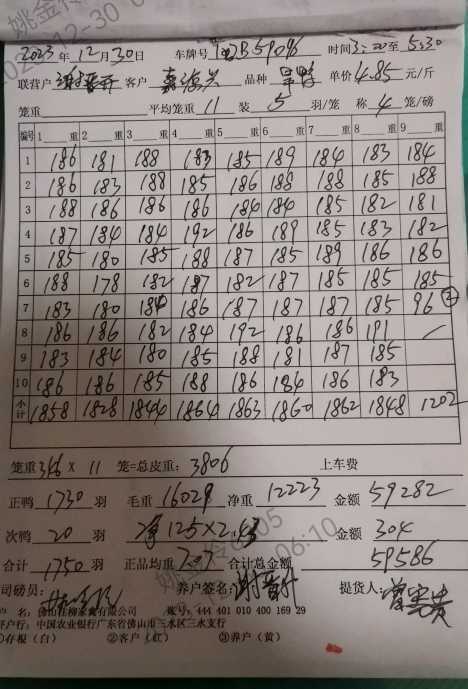 2023年12月30日 车牌号 时间3:20至5:30
联营户 客户 品种 单价4.85元/斤
笼重 平均笼重 11 装 5 羽/笼 称 4 笼/磅
编号 1 重 2 重 3 重 4 重 5 重 6 重 7 重 8 重 9 重
1 186 181 188 183 185 189 184 183 184
2 186 183 188 185 186 188 188 185 188
3 188 186 186 186 184 184 185 182 181
4 187 184 184 192 186 189 185 183 182
5 185 180 185 188 187 185 189 186 186
6 188 178 182 187 182 187 185 185 185
7 183 180 184 186 187 187 187 185 96 ②
8 186 186 182 184 192 186 186 191 /
9 183 184 180 185 188 181 187 185
10 186 186 185 188 186 184 186 183
小计 1858 1828 1844 1864 1863 1860 1862 1848 1202
笼重346 × 11 笼=总皮重:3806 上车费
正鸭 1730 羽 毛重 16029 净重 12223 金额 59282
次鸭 20 羽 净125×2.43 金额 304
合计 1750 羽 正品均重 7.07 合计总金额 59586
司磅员: 养户签名: 提货人:
账号:444 401 010 400 169 29
开户行:中国农业银行广东省佛山市三水区三水支行
①存根(白) ②客户(红) ③养户(黄)